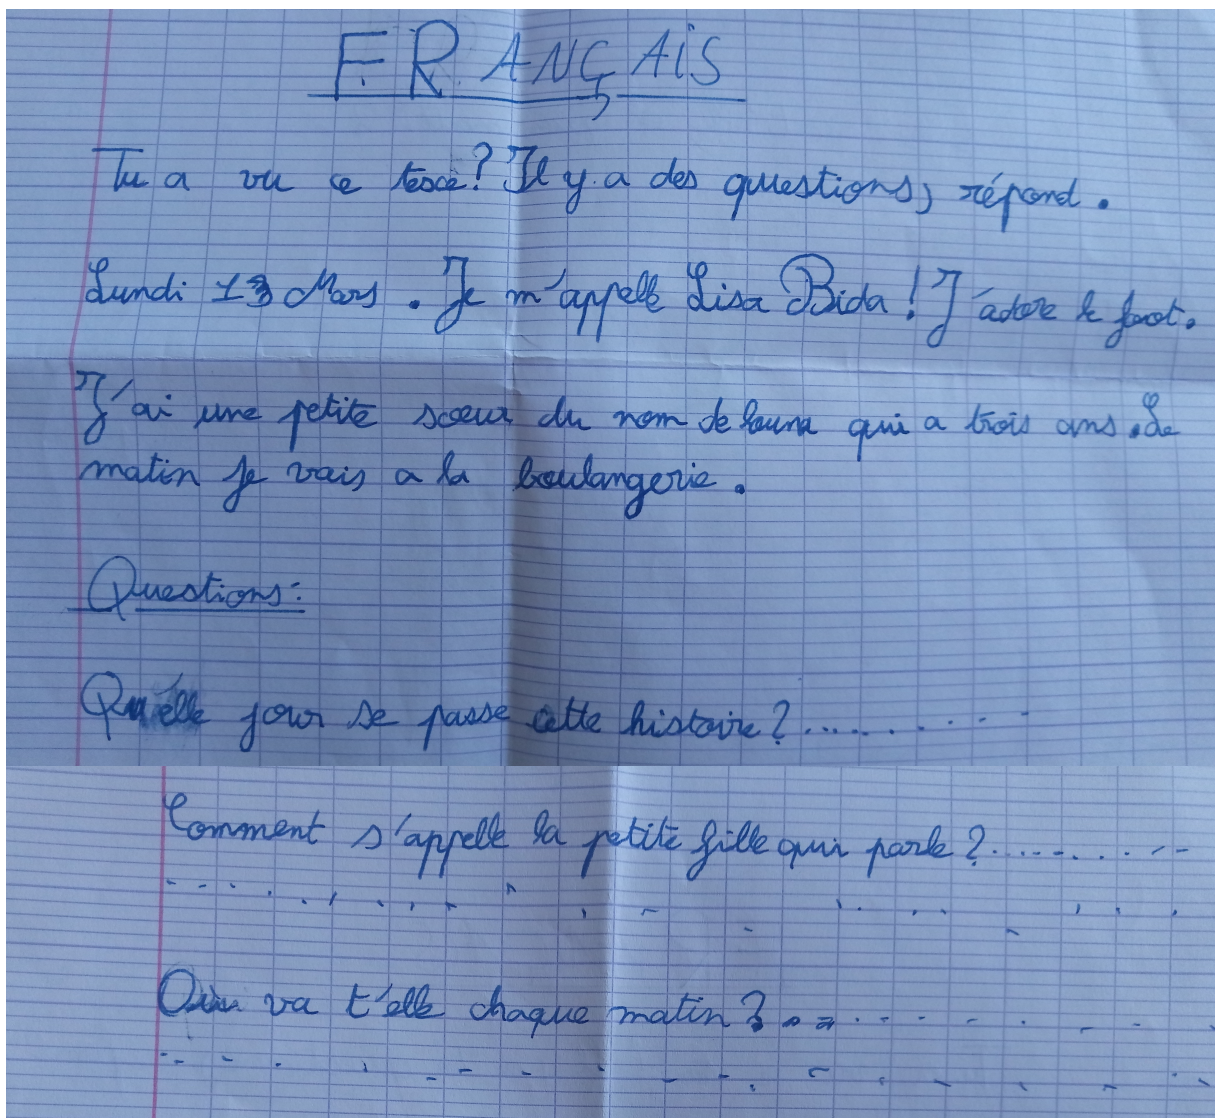 FRANÇAIS
Tu a vu ce texte? Il y a des questions, répond.
Lundi 13 Mars. Je m'appelle Lisa Bida! J'adore le foot.
J'ai une petite soeur du nom de louna qui a trois ans. Le
matin je vais a la boulangerie.
Questions:
Quelle jour se passe cette histoire?..............
Comment s'appelle la petite fille qui parle?..............
Où va t'elle chaque matin?..............